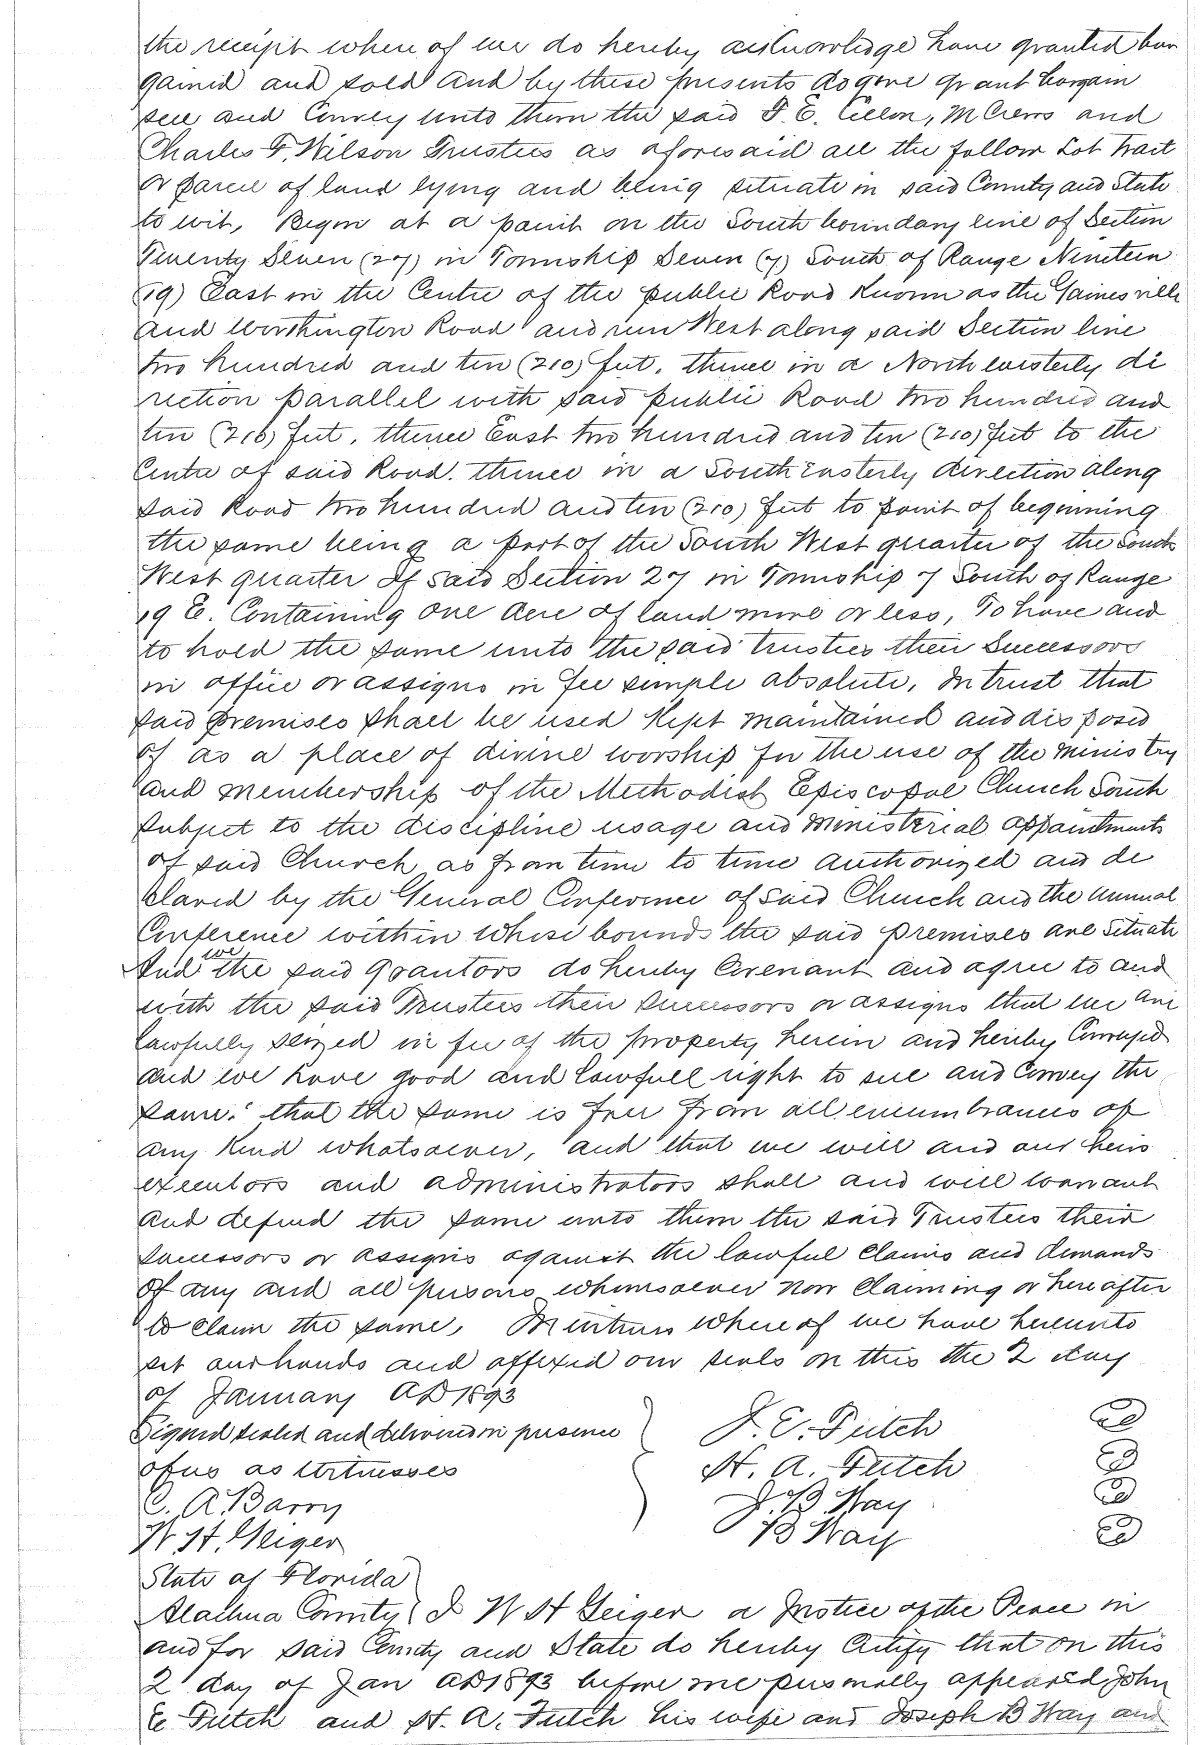 the receipt where of we do hereby acknowledge have granted bar
gained and sold and by these presents do give grant bargain
sell and Convey unto them the said F. E. Cellon, M Crews and
Charles F. Wilson Trustees as aforesaid all the follow Lot Tract
or parcel of land lying and being situate in said County and State
to wit, Begin at a point on the South boundary line of Section
Twenty Seven (27) in Township Seven (7) South of Range Nineteen
(19) East in the Centre of the public Road Known as the Gainesville
and Worthington Road and run West along said Section line
two hundred and ten (210) feet, thence in a North easterly di
rection parallel with said public Road two hundred and
ten (210) feet, thence East two hundred and ten (210) feet to the
Centre of said Road. thence in a South Easterly direction along
said Road two hundred and ten (210) feet to point of beginning
the same being a part of the South West quarter of the South
West quarter of said Section 27 in Township 7 South of Range
19 E. Containing one acre of land more or less, To have and
to hold the same unto the said trustees their Successors
in office or assigns in fee simple absolute, In trust that
said premises shall be used Kept maintained and disposed
of as a place of divine worship for the use of the ministry
and membership of the Methodist Episcopal Church South
subject to the discipline usage and ministerial appointments
of said Church as from time to time authorized and de
clared by the General Conference of said Church and the annual
Conference within whose bounds the said premises are situate
And we the said grantors do hereby Covenant and agree to and
with the said Trustees their successors or assigns that we are
lawfully seized in fee of the property herein and hereby Conveyed
and we have good and lawfull right to sell and Convey the
same. that the same is free from all encumbrances of
any Kind whatsoever, and that we will and our heirs
executors and administrators shall and will warrant
and defend the same unto them the said Trustees their
successors or assigns against the lawful claims and demands
of any and all persons whomsoever now claiming or here after
to claim the same, In witness whereof we have hereunto
set our hands and affixed our seals on this the 2 day
of January AD 1893
Signed sealed and delivered in presence
of us as Witnesses
C. A. Barry
W. H. Geiger
J. E. Futch
H. A. Futch
J. B Way
B Way
State of Florida
Alachua County I W H Geiger a Justice of the Peace in
and for said County and State do hereby Certify that on this
2 day of Jan AD 1893 before me personally appeared John
E Futch and H. A. Futch his wife and Joseph B Way and